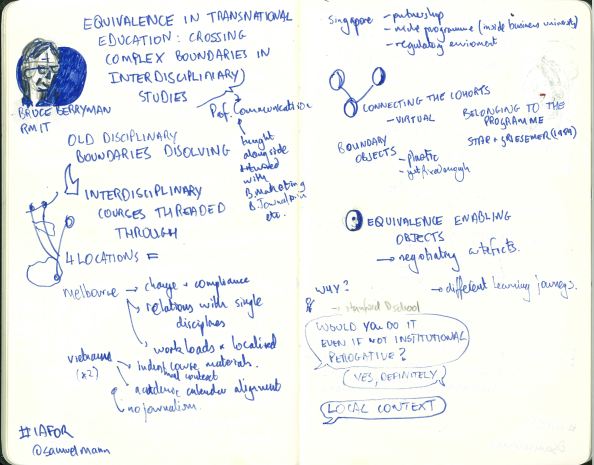 EQUIVALENCE IN TRANSNATIONAL
EDUCATION: CROSSING
COMPLEX BOUNDARIES IN
INTERDISCIPLINARY
STUDIES
BRUCE BERRYMAN
RMIT
Prof. Communication
bought
alongside
with
B. Marketing
B. Journalism
etc.
OLD DISCIPLINARY
BOUNDARIES DISOLVING
INTERDISCIPLINARY
COURSES THREADED
THROUGH
4 LOCATIONS =
Melbourne → change + compliance
→ relations with single
disciplines
→ workloads localised
Vietnam → course materials.
(x2)
context
→ academic calendar alignment
→ no journalism.
#IAFOR
@samuelmann
Singapore - partnership
- niche programme (inside business university)
- regulatory enviroment
CONNECTING THE COHORTS
- VIRTUAL
BELONGING TO THE
PROGRAMME
STAR + GRIESEMER (1989)
BOUNDARY
OBJECTS
- plastic
- yet fixed enough
EQUIVALENCE ENABLING
OBJECTS
→ negotiating artefacts.
→ different learning journeys.
WHY?
→ Stanford D school
WOULD YOU DO IT
EVEN IF NOT INSTITUTIONAL
PEROGATIVE?
YES, DEFINITELY
LOCAL CONTEXT